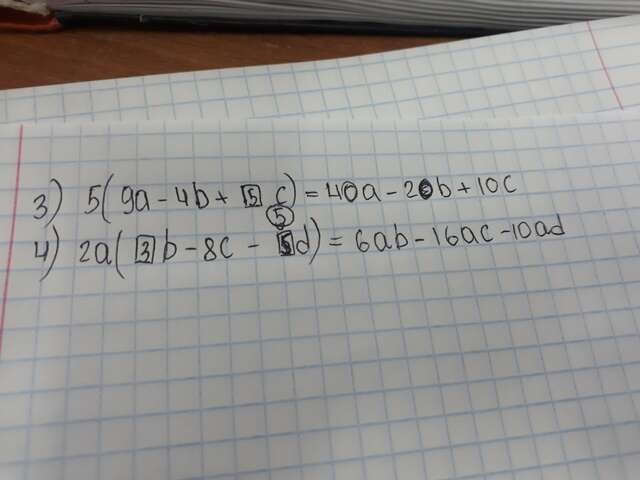 3) 5(9a - 4b + 5 c) = 40a - 20b + 10c
5
4) 2a( 3 b - 8c - 5 d) = 6ab - 16ac - 10ad